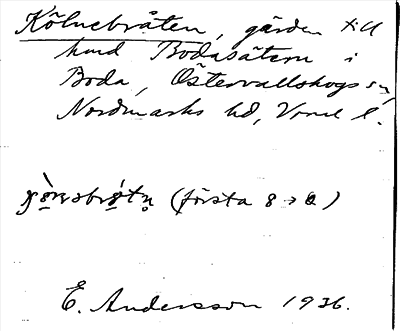 Kölnebråten, gården till
hmd Bodasätern i
Boda, Östervallskogs sn,
Nordmarks hd, Vrml l.
(första 8 → Q)
E. Andersson 1936.